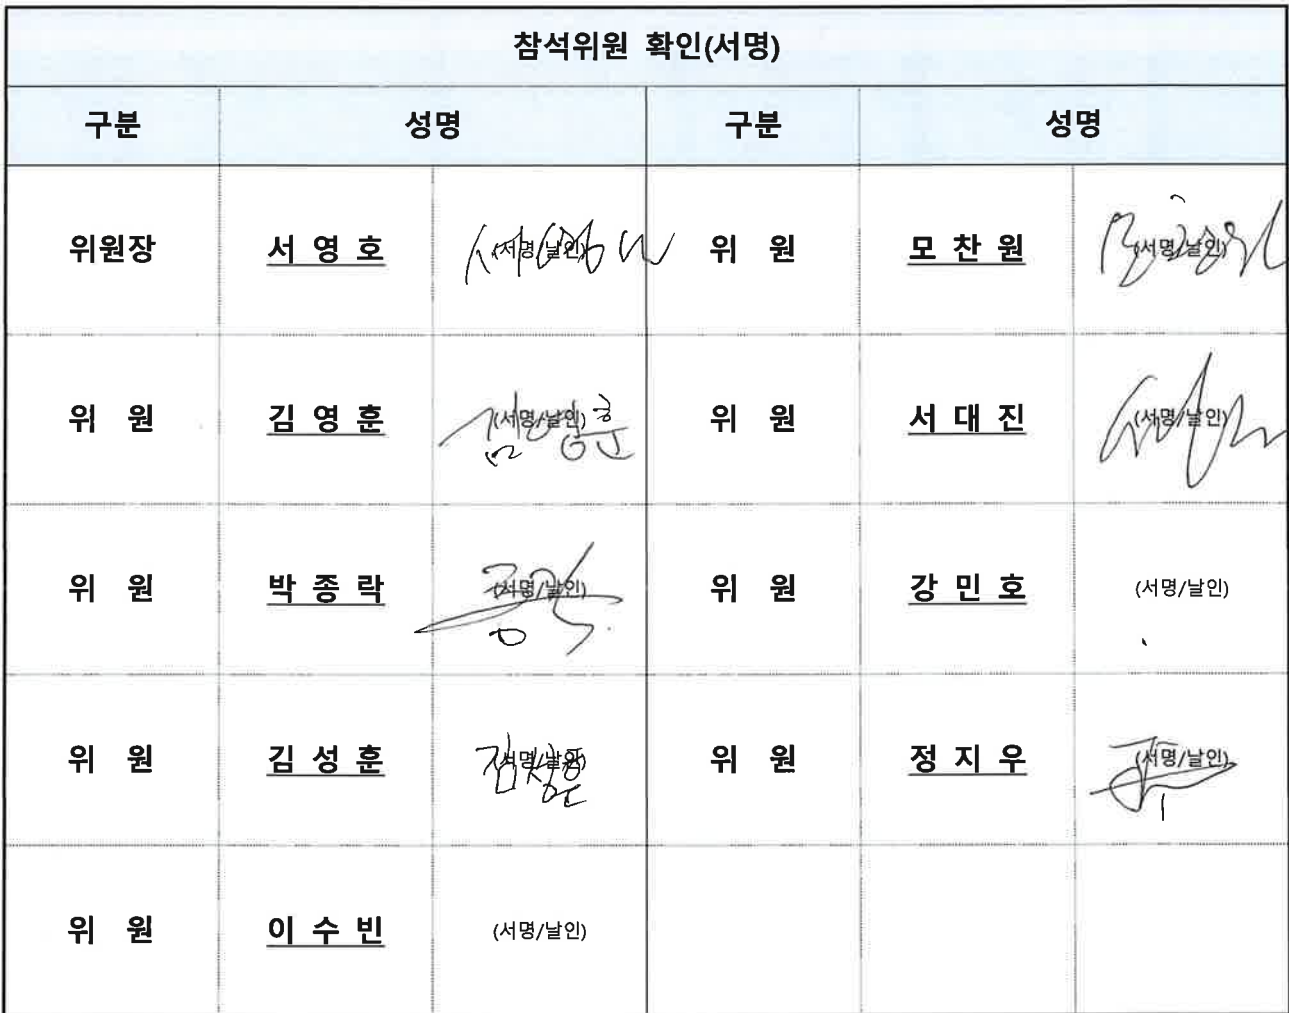 참석위원 확인(서명)
구분 성명 구분 성명
위원장 서 영 호 (서명/날인) 위 원 모 찬 원 (서명/날인)
위 원 김 영 훈 (서명/날인) 위 원 서 대 진 (서명/날인)
위 원 박 종 락 (서명/날인) 위 원 강 민 호 (서명/날인)
위 원 김 성 훈 (서명/날인) 위 원 정 지 우 (서명/날인)
위 원 이 수 빈 (서명/날인)